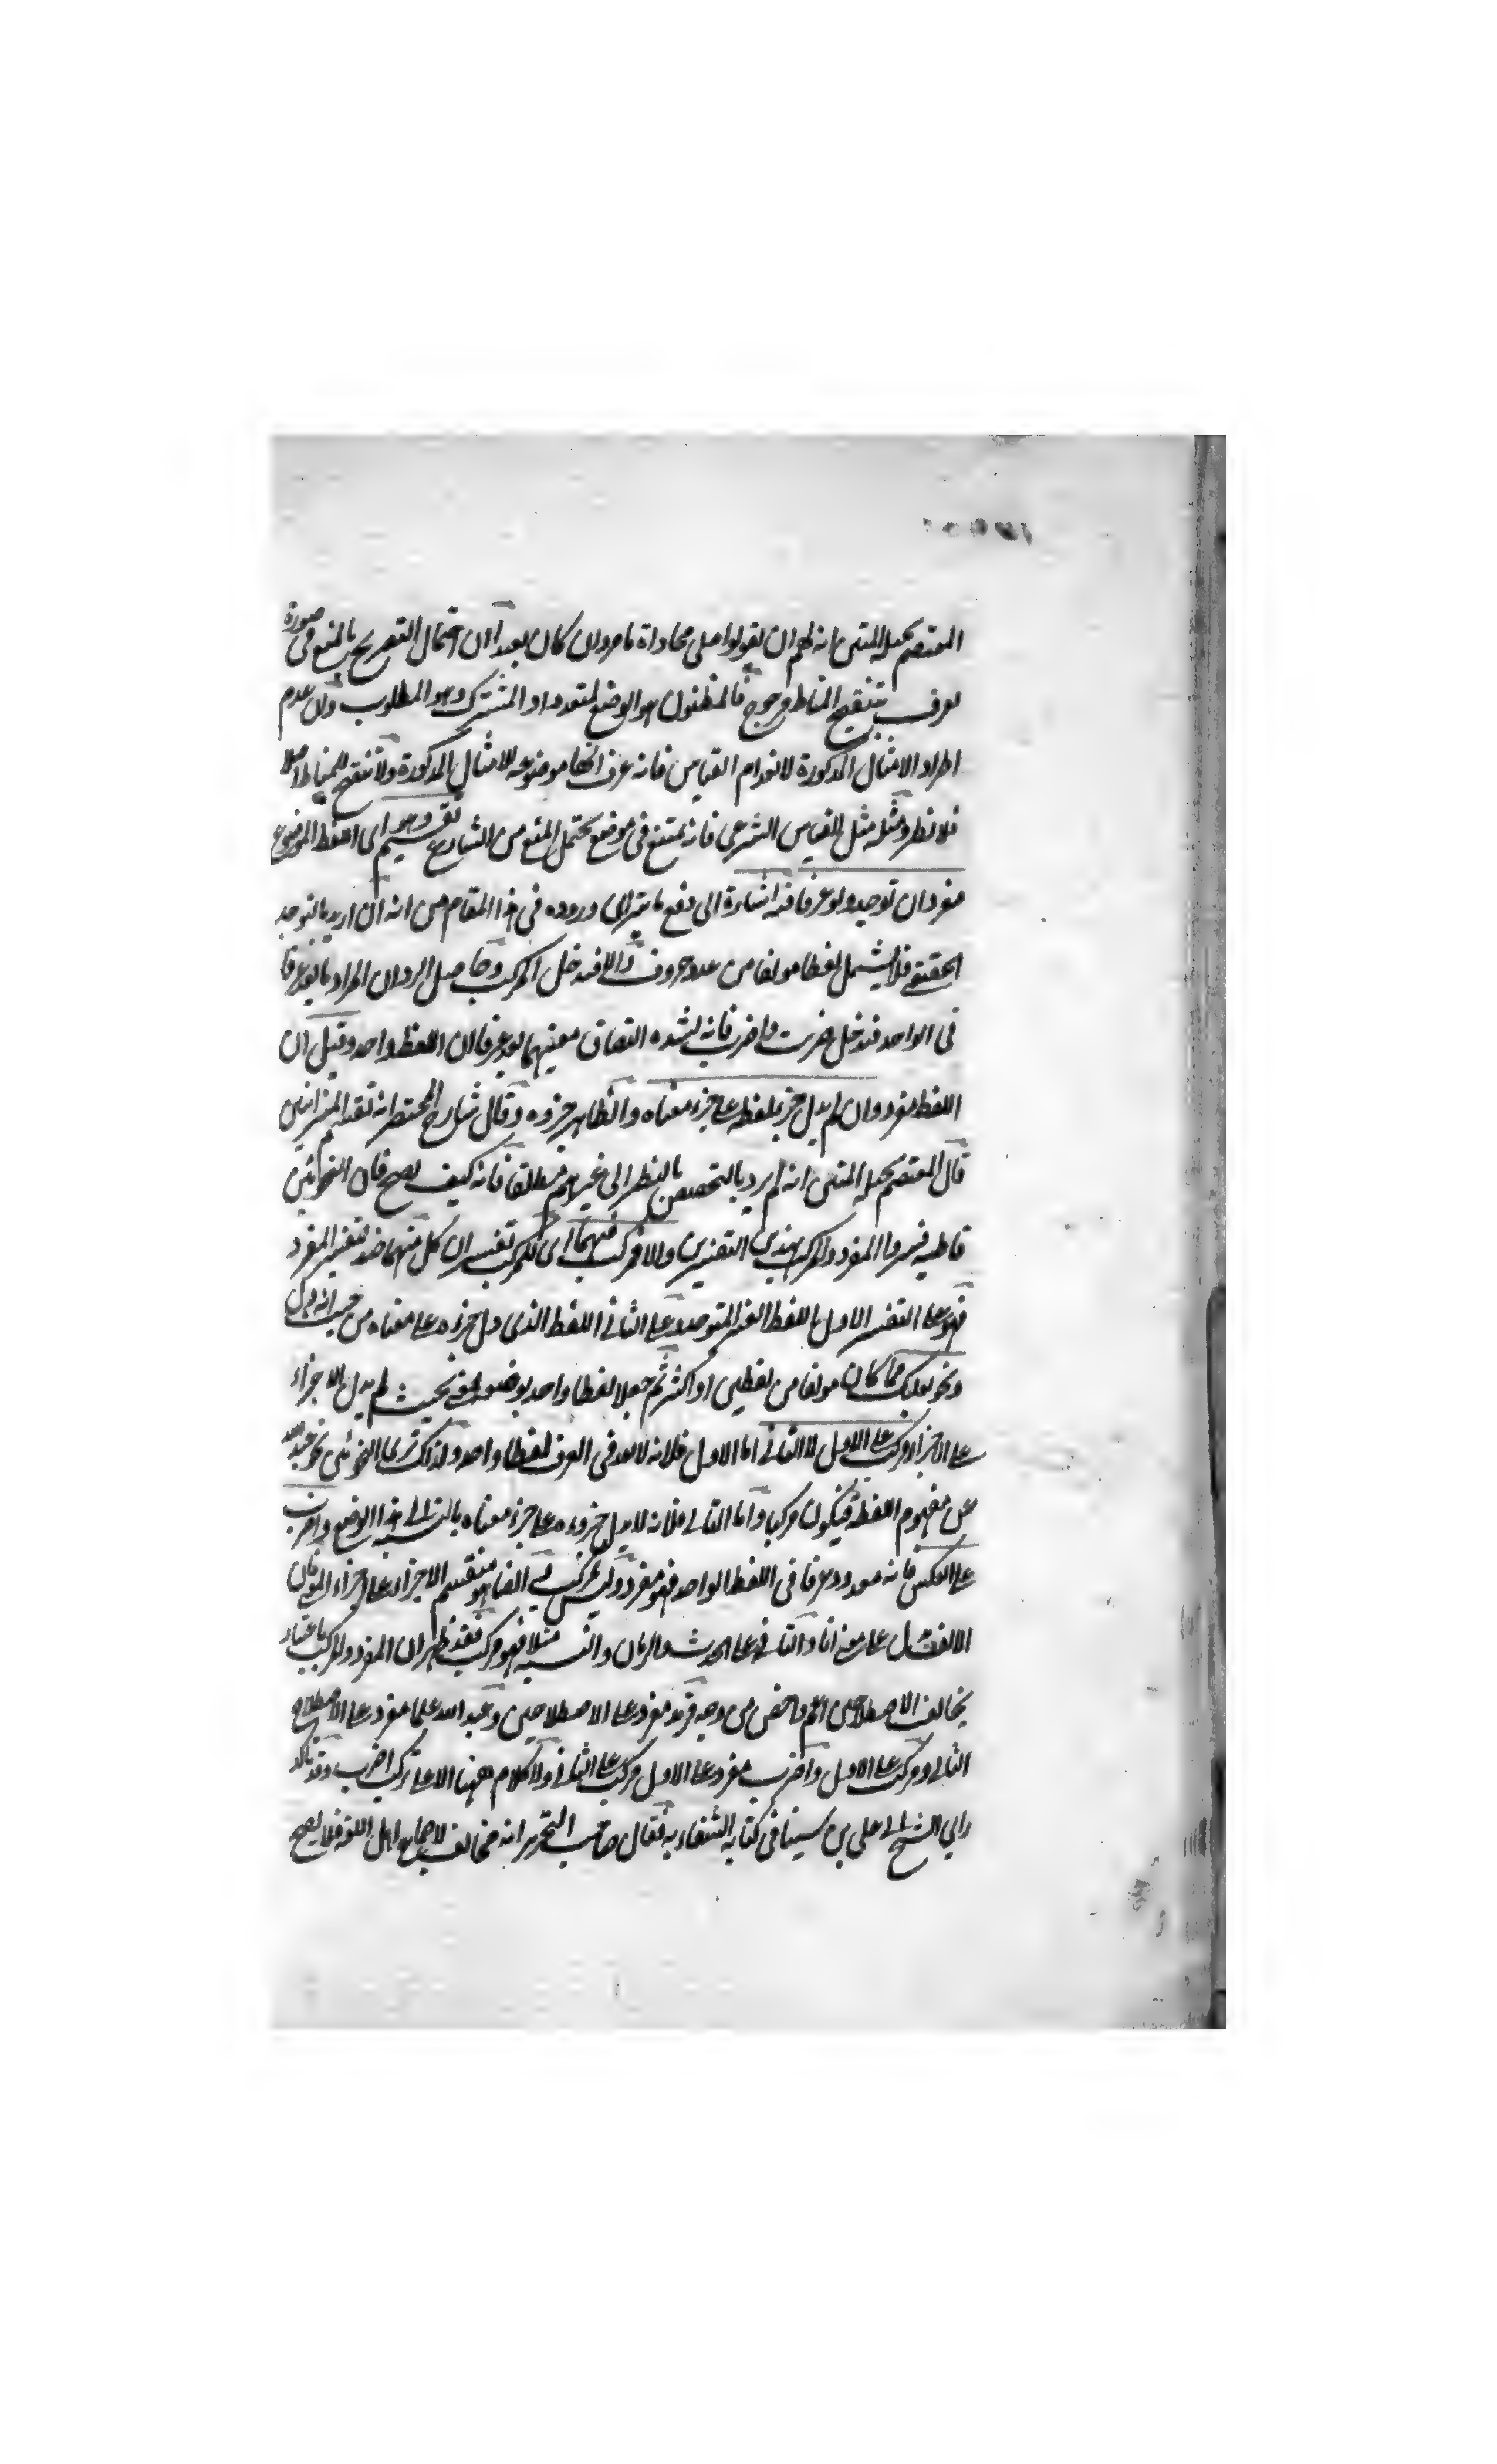 المعتصم بحبله المتين انه لهم ان يقولوا على محاذاة ما مر وان كان بعيدا ان احتمال التصريح بالمنع في صورة
يعرف بتنقيح المناط مرجوح فالمظنون هو الوضع لمتعدد او المشترك وهو المطلوب وان عدم
اطراد الامثال المذكورة لانعدام القياس فانه عرف انها موضوعة للامثال المذكورة ولا تنقيح للمناط اصلا
فلا نظر ومثله مثل القياس الشرعي فانه يمتنع في موضع يحتمل المنع من الشارع تقسيم وهو اى اللفظ الموضوع
مفرد ان توحد ولو عرفا فيه اشارة الى دفع ما يتراى وروده في هذا المقام من انه ان اريد بالتوحد
الحقيقي فلا يشمل لفظا مولفا من عدة حروف والا فيدخل المركب وحاصل الرد ان المراد ما يعد عرفا
في الواحد فيدخل ضربت واضرب فانه لشدة التصاق معنييهما يعد عرفا ان اللفظ واحد وقيل ان
اللفظ مفرد وان لم يدل جزء لفظه على جزء معناه والظاهر جزوه وقال شارح المختصر انه تفسير الميزانيين
قال المعتصم بحبله المتين انه لم يرد بالتخصيص بالنظر الى غيرهم مطلقا فانه كيف يصح فان النحوائين
قاطبة فسروا المفرد والمركب بهذين التفسيرين والا فمركب فيهما اى للمركب تفسيران كل منهما ضد لتفسير المفرد
فهو على التفسير الاول اللفظ الغير المتوحد وعلى الثاني اللفظ الذى دل جزءه على معناه من حيث انه جزء
ونحو بعلبك مما كان مولفا من لفظين او اكثر ثم جعلا لفظا واحدا بوضع بحيث لم يدل الاجزاء
على الاجزاء مركب على الاول لا الثاني اما الاول فلانه لا يعد في العرف لفظا واحدا ولذلك ترى النحوائين نحو عبد الله
عن مفهوم اللفظة فيكون مركبا واما الثاني فلانه لا يدل جزوه على جزء معناه بالنسبة الى هذا الوضع واضرب
على العكس فانه معدود عرفا في اللفظ الواحد فهو مفرد وليس بمركب الاجزاء على اجزاء فان
الالف يدل على معنى انا والثاني على الحدث والزمان والنسبة مثلا فهو مركب فقد ظهر ان المفرد والمركب باعتبار
تخالف الاصطلاحين اعم واخص من وجه فزيد مفرد على الاصطلاحين وعبد الله علما مفرد على الاصطلاح
الثاني ومركب على الاول واضرب مفرد على الاول مركب على الثاني ولا كلام ههنا الا على تركب اضرب وقد تاكد
راى الشيخ ابي على بن سينا في كتابه الشفاء به فقال صاحب التحرير انه مخالف لاجماع اهل اللغة فلا يصح